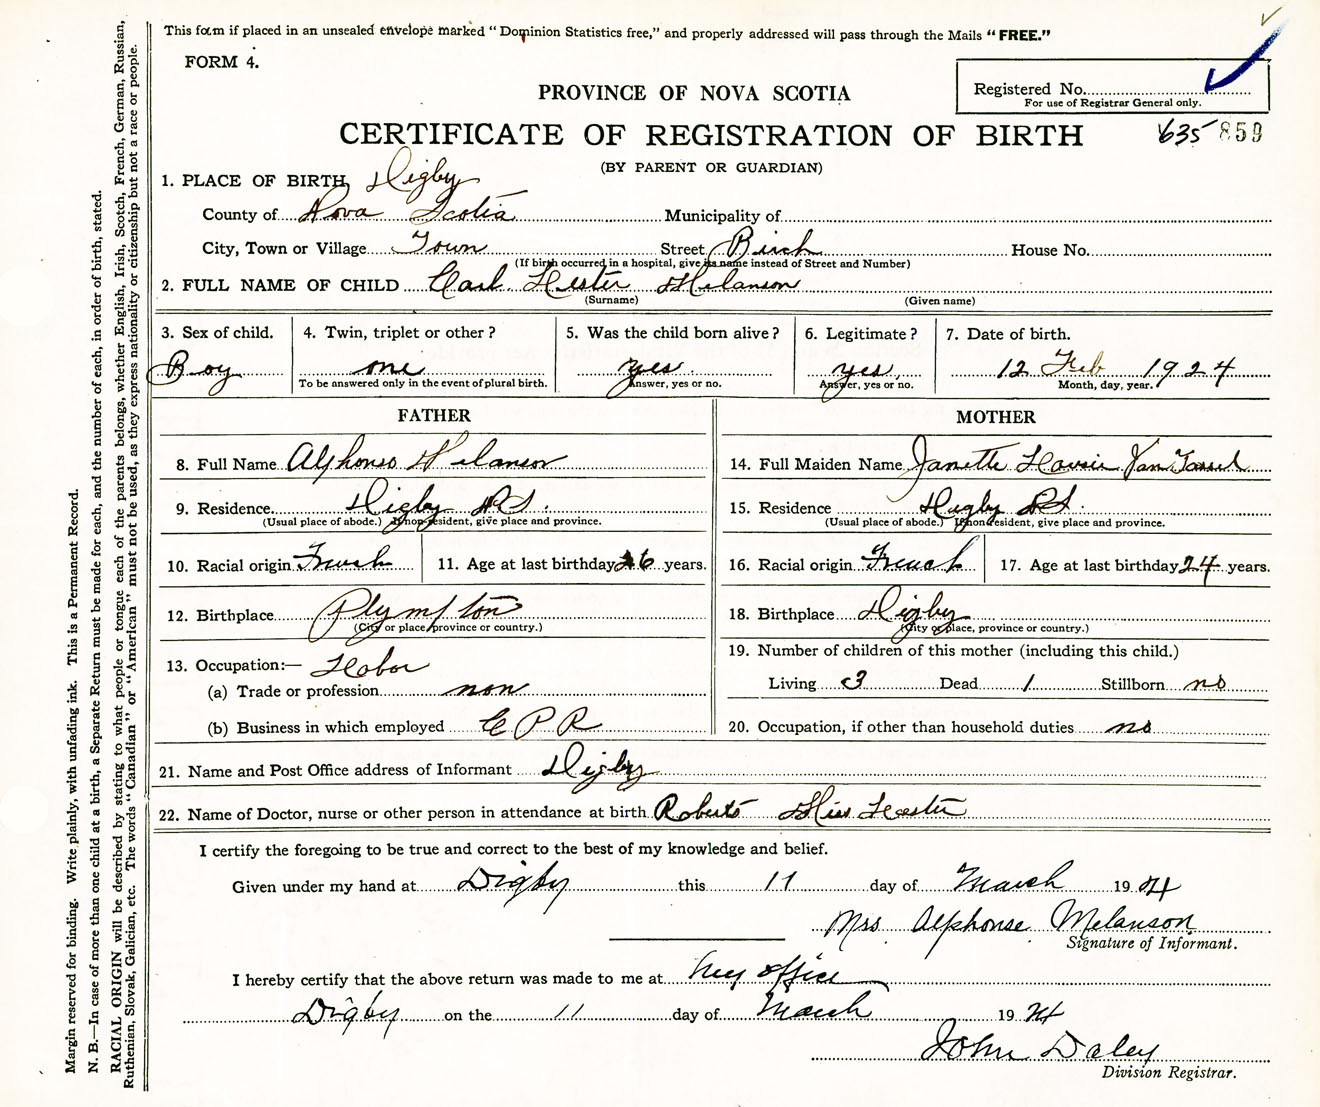 This form if placed in an unsealed envelope marked "Dominion Statistics free," and properly addressed will pass through the Mails "FREE."
FORM 4.
Registered No.
For use of Registrar General only.
PROVINCE OF NOVA SCOTIA
CERTIFICATE OF REGISTRATION OF BIRTH 635 859
(BY PARENT OR GUARDIAN)
1. PLACE OF BIRTH, Digby
County of Nova Scotia Municipality of
City, Town or Village Town Street Birch House No.
(If birth occurred in a hospital, give its name instead of Street and Number)
2. FULL NAME OF CHILD Carl Lester Melanson
(Surname) (Given name)
3. Sex of child. 4. Twin, triplet or other? 5. Was the child born alive? 6. Legitimate? 7. Date of birth.
Boy one yes yes 12 Feb 1924
To be answered only in the event of plural birth. Answer, yes or no. Answer, yes or no. Month, day, year.
FATHER MOTHER
8. Full Name Alphonso Melanson 14. Full Maiden Name Janette Van Tassel
9. Residence Digby NS. 15. Residence Digby NS.
(Usual place of abode.) If non-resident, give place and province. (Usual place of abode.) If non-resident, give place and province.
10. Racial origin French 11. Age at last birthday 26 years. 16. Racial origin French 17. Age at last birthday 24 years.
12. Birthplace Plympton 18. Birthplace Digby
(City or place, province or country.) (City or place, province or country.)
13. Occupation:— Labor 19. Number of children of this mother (including this child.)
(a) Trade or profession non Living 3 Dead 1 Stillborn no
(b) Business in which employed C P R 20. Occupation, if other than household duties no
21. Name and Post Office address of Informant Digby
22. Name of Doctor, nurse or other person in attendance at birth Roberts Miss Lester
I certify the foregoing to be true and correct to the best of my knowledge and belief.
Given under my hand at Digby this 11 day of March 1924
Mrs Alphonse Melanson
Signature of Informant.
I hereby certify that the above return was made to me at my office
Digby on the 11 day of March 1924
John Daley
Division Registrar.
Margin reserved for binding. Write plainly, with unfading ink. This is a Permanent Record.
N. B.—In case of more than one child at a birth, a Separate Return must be made for each, and the number of each, in order of birth, stated.
RACIAL ORIGIN will be described by stating to what people or tongue each of the parents belongs, whether English, Irish, Scotch, French, German, Russian,
Ruthenian, Slovak, Galician, etc. The words "Canadian" or "American" must not be used, as they express nationality or citizenship but not a race or people.